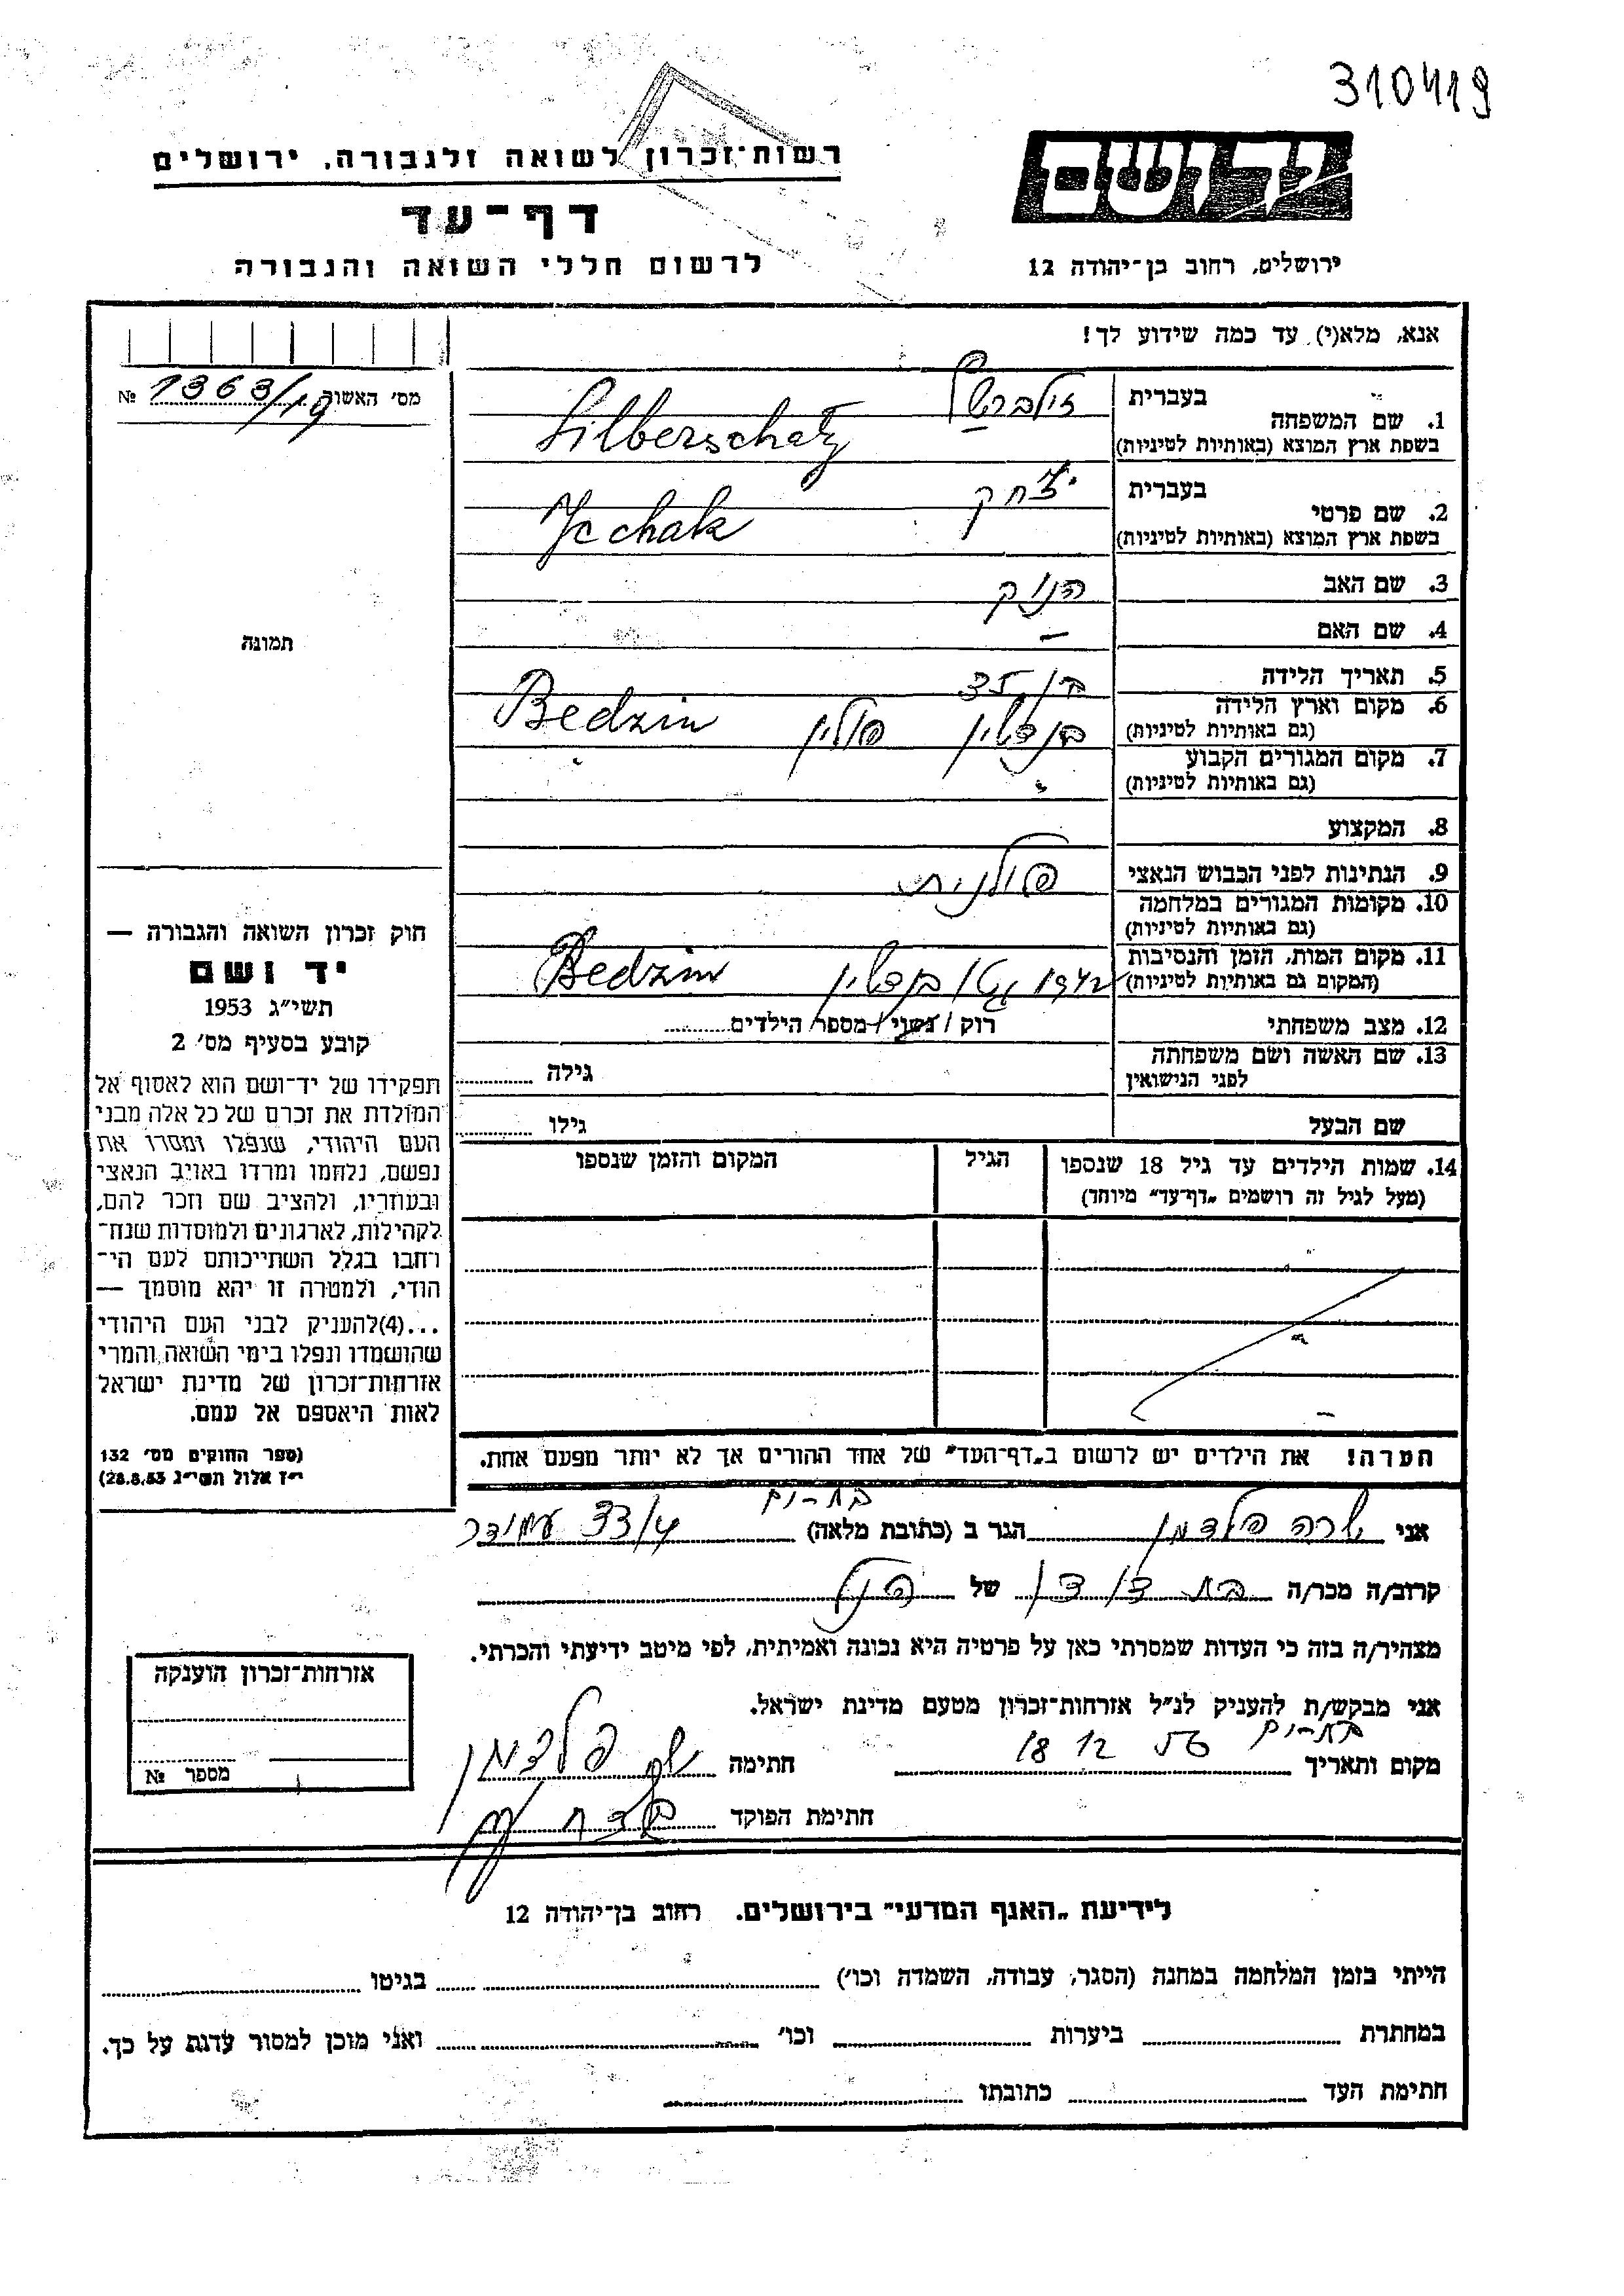 310419
יד ושם
רשות־זכרון לשואה ולגבורה, ירושלים
דף־עד
לרשום חללי השואה והגבורה
ירושלים, רחוב בן־יהודה 12
אנא, מלא(י) עד כמה שידוע לך!
מס׳ האשור 1363/19 №
1. שם המשפחה
בעברית זילברשץ
בשפת ארץ המוצא (באותיות לטיניות) Silberschatz
2. שם פרטי
בעברית יצחק
בשפת ארץ המוצא (באותיות לטיניות) Icchak
3. שם האב
4. שם האם –
5. תאריך הלידה בן 35
6. מקום וארץ הלידה
(גם באותיות לטיניות) בנדין פולין Bedzin
7. מקום המגורים הקבוע
(גם באותיות לטיניות)
8. המקצוע
9. הנתינות לפני הכבוש הנאצי פולנית
10. מקומות המגורים במלחמה
(גם באותיות לטיניות)
11. מקום המות, הזמן והנסיבות
(המקום גם באותיות לטיניות) 1942 Bedzin
12. מצב משפחתי רוק / נשוי / מספר הילדים
13. שם האשה ושם משפחתה
לפני הנישואין גילה
שם הבעל גילו
14. שמות הילדים עד גיל 18 שנספו
(מעל לגיל זה רושמים „דף־עד” מיוחד)
הגיל
המקום והזמן שנספו
תמונה
חוק זכרון השואה והגבורה —
יד ושם
תשי״ג 1953
קובע בסעיף מס׳ 2
תפקידו של יד־ושם הוא לאסוף אל
המולדת את זכרם של כל אלה מבני
העם היהודי, שנפלו ומסרו את
נפשם, נלחמו ומרדו באויב הנאצי
ובעוזריו, ולהציב שם וזכר להם,
לקהילות, לארגונים ולמוסדות שנח־
רבו בגלל השתייכותם לעם הי־
הודי, ולמטרה זו יהא מוסמך —
...(4)להעניק לבני העם היהודי
שהושמדו ונפלו בימי השואה והמרי
אזרחות־זכרון של מדינת ישראל
לאות היאספם אל עמם.
(ספר החוקים מס׳ 132
י״ז אלול תשי״ג 28.8.53)
הערה! את הילדים יש לרשום ב„דף־העד” של אחד ההורים אך לא יותר מפעם אחת.
אני שרה פלדמן הגר ב (כתובת מלאה) בת־ים 33/4
קרוב/ה מכר/ה בת דודן של הנ״ל
מצהיר/ה בזה כי העדות שמסרתי כאן על פרטיה היא נכונה ואמיתית, לפי מיטב ידיעתי והכרתי.
אני מבקש/ת להעניק לנ״ל אזרחות־זכרון מטעם מדינת ישראל.
מקום ותאריך בת־ים 18 12 56 חתימה שרה פלדמן
חתימת הפוקד
אזרחות־זכרון הוענקה
מספר №
לידיעת „האגף המדעי” בירושלים. רחוב בן־יהודה 12
הייתי בזמן המלחמה במחנה (הסגר, עבודה, השמדה וכו׳) בגיטו
במחתרת ביערות וכו׳ ואני מוכן למסור עדות על כך.
חתימת העד כתובתו